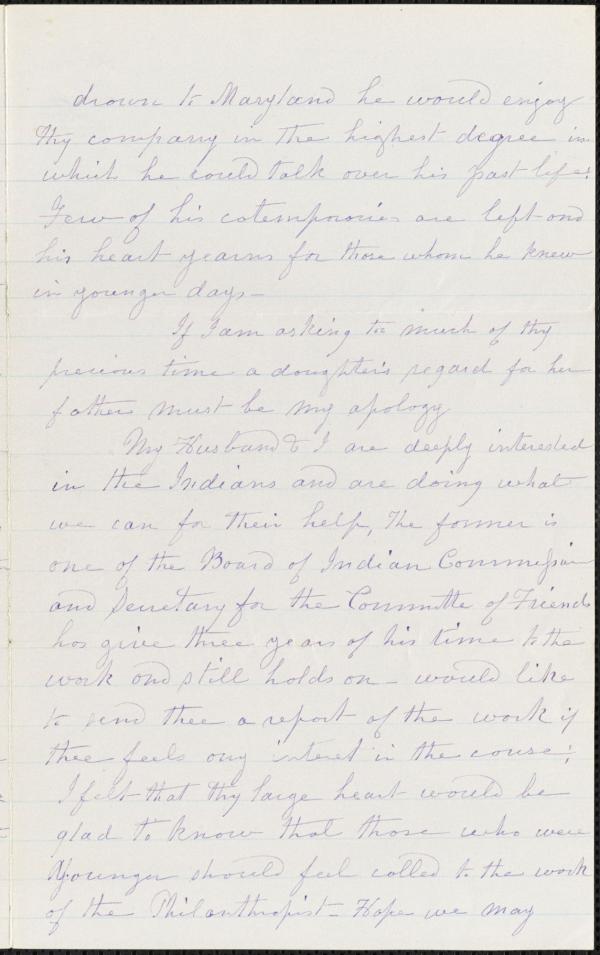 drown to Maryland he would enjoy
thy company in the highest degree in
which he could talk over his past life:
Few of his cotemporaries are left and
his heart yearns for those whom he knew
in younger days—
If I am asking to much of thy
precious time a daughter's regard for her
father must be my apology
My Husband & I are deeply interested
in the Indians and are doing what
we can for their help, The former is
one of the Board of Indian Commission
and Secretary for the Committe of Friends
has give three years of his time to the
work and still holds on – would like
to send thee a report of the work if
thee feels any interet in the cause;
I felt that thy large heart would be
glad to know that those who were
Younger should feel called to the work
of the Philanthropist – Hope we may